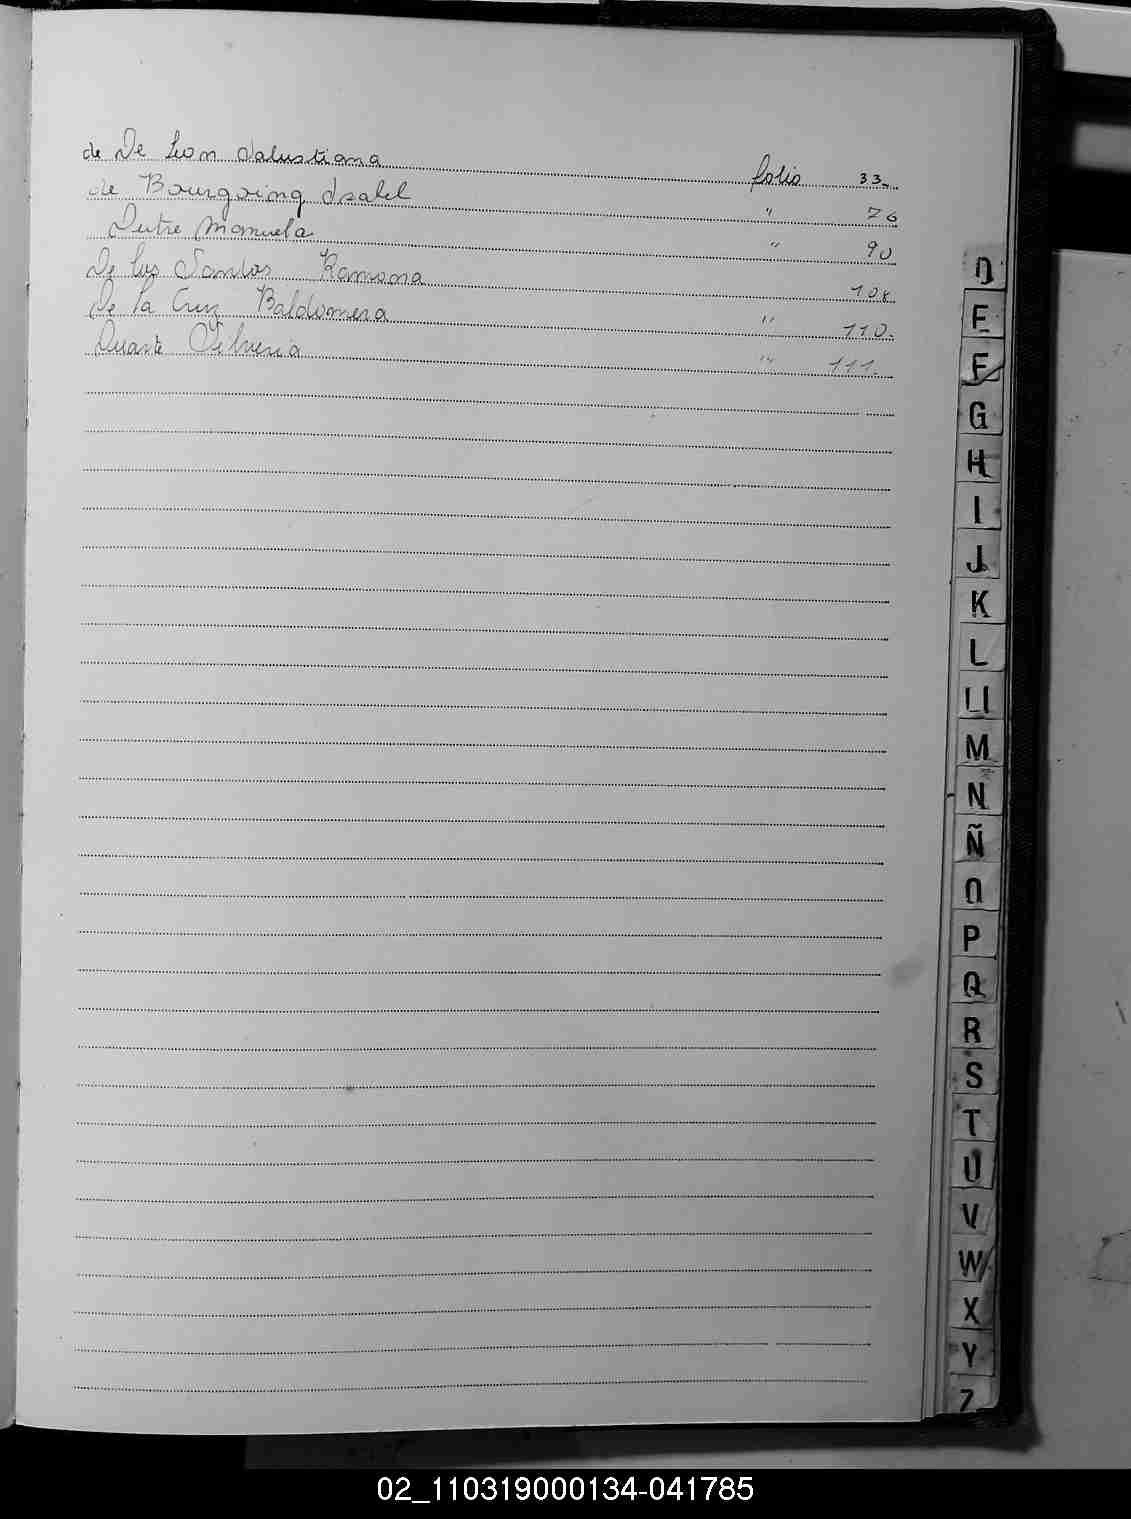 de De Leon Salustiana folio 33
de Bourgoing Isabel " 76
Dutre Manuela " 90
De los Santos Ramona 108
De la Cruz Baldomera " 110.
Duarte Silveria " 111.
D
E
F
G
H
I
J
K
L
Ll
M
N
Ñ
O
P
Q
R
S
T
U
V
W
X
Y
Z
02_110319000134-041785